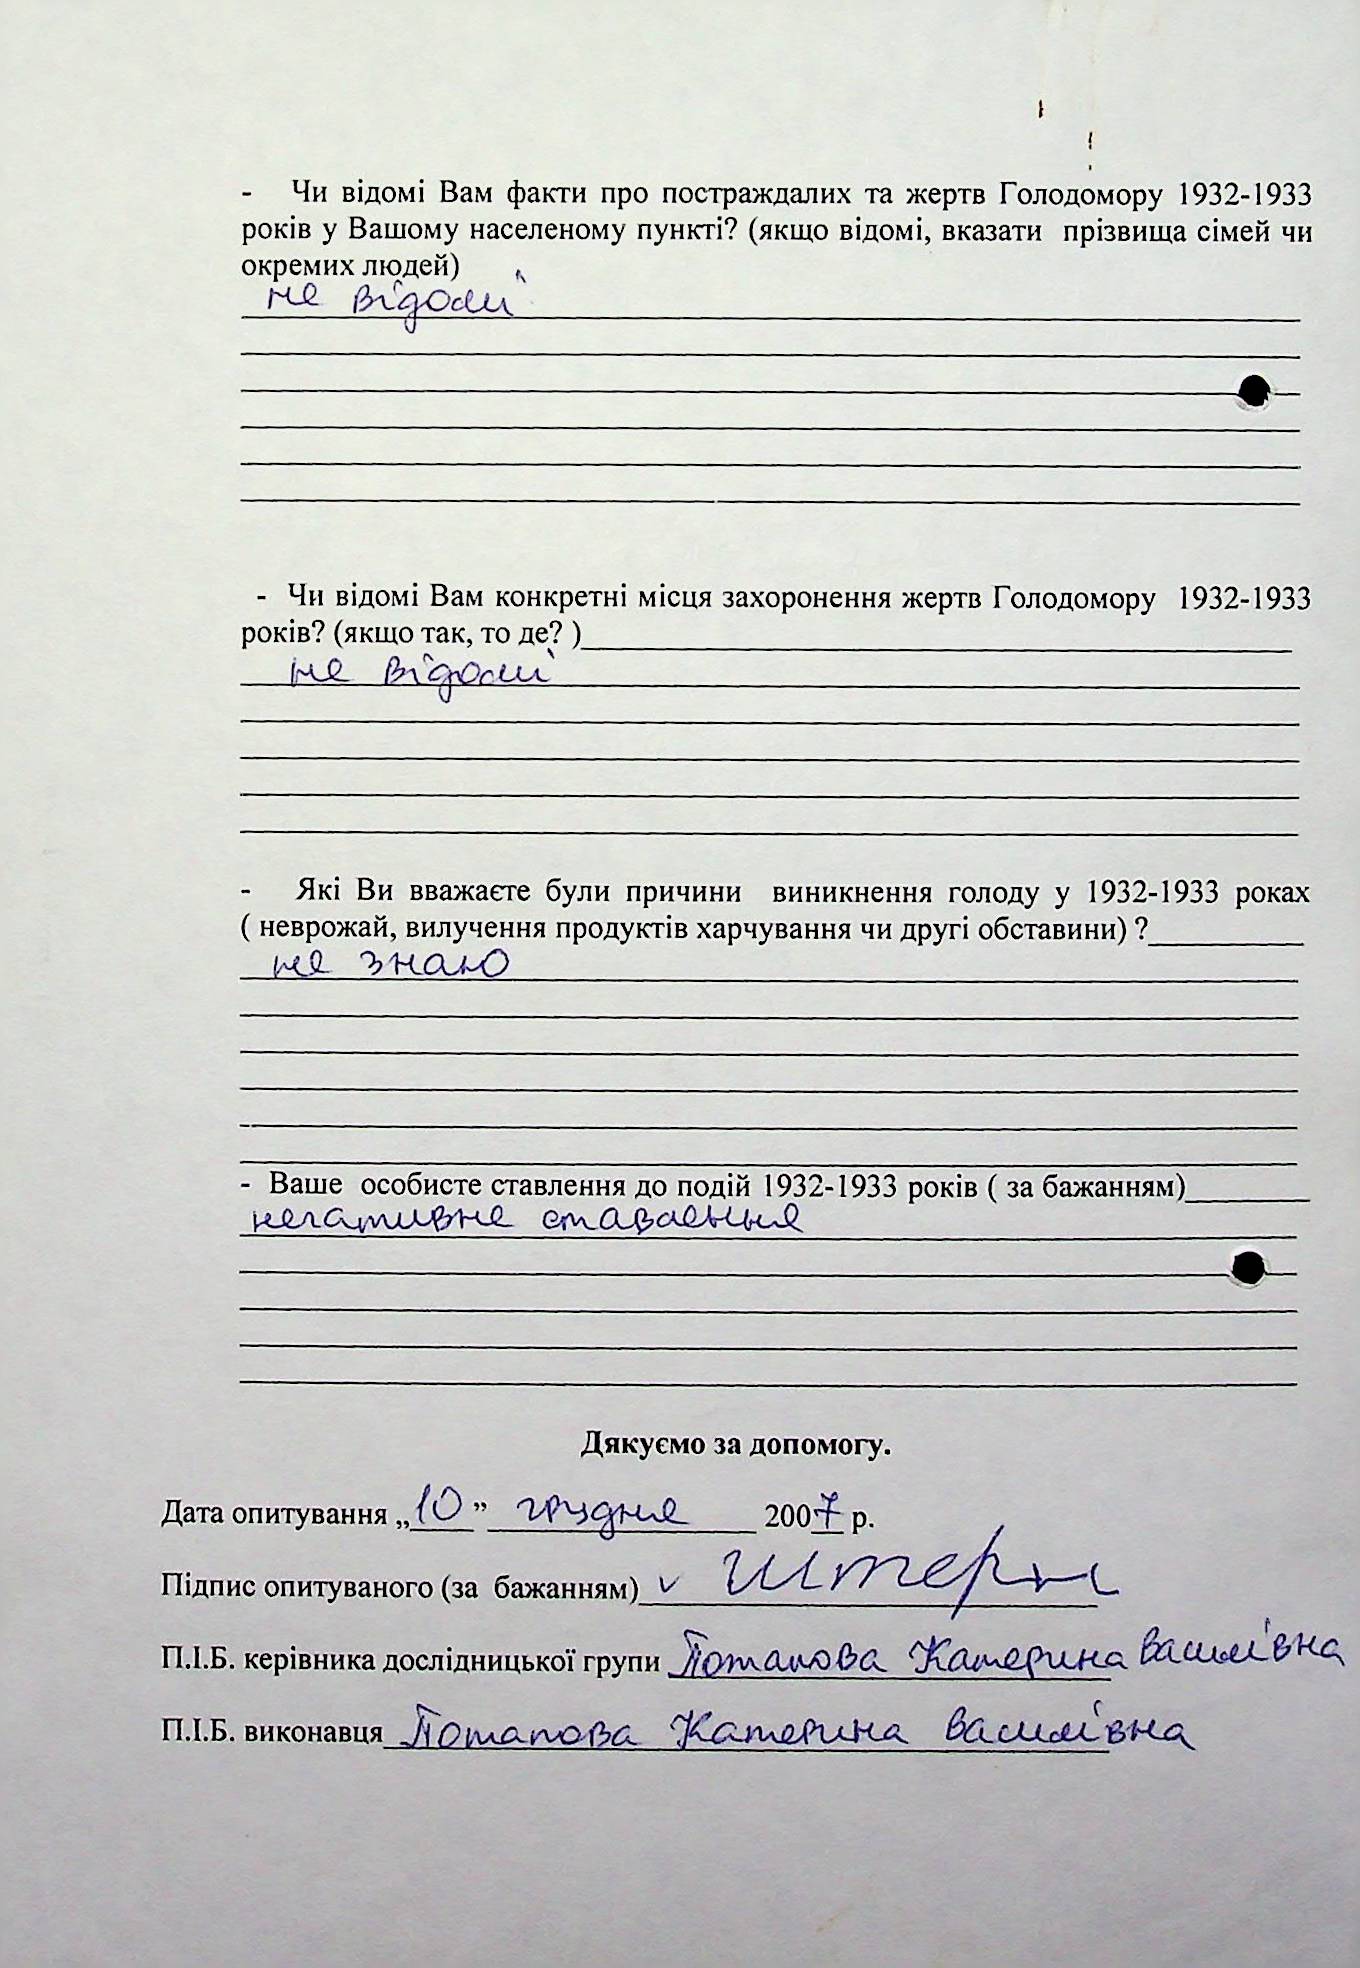 - Чи відомі Вам факти про постраждалих та жертв Голодомору 1932-1933
років у Вашому населеному пункті? (якщо відомі, вказати прізвища сімей чи
окремих людей)
не відомі
- Чи відомі Вам конкретні місця захоронення жертв Голодомору 1932-1933
років? (якщо так, то де? )
не відомі
- Які Ви вважаєте були причини виникнення голоду у 1932-1933 роках
( неврожай, вилучення продуктів харчування чи другі обставини) ?
не знаю
- Ваше особисте ставлення до подій 1932-1933 років ( за бажанням)
негативне ставлення
Дякуємо за допомогу.
Дата опитування „10" грудня 2007 р.
Підпис опитуваного (за бажанням) v
П.І.Б. керівника дослідницької групи Потапова Катерина Василівна
П.І.Б. виконавця Потапова Катерина Василівна